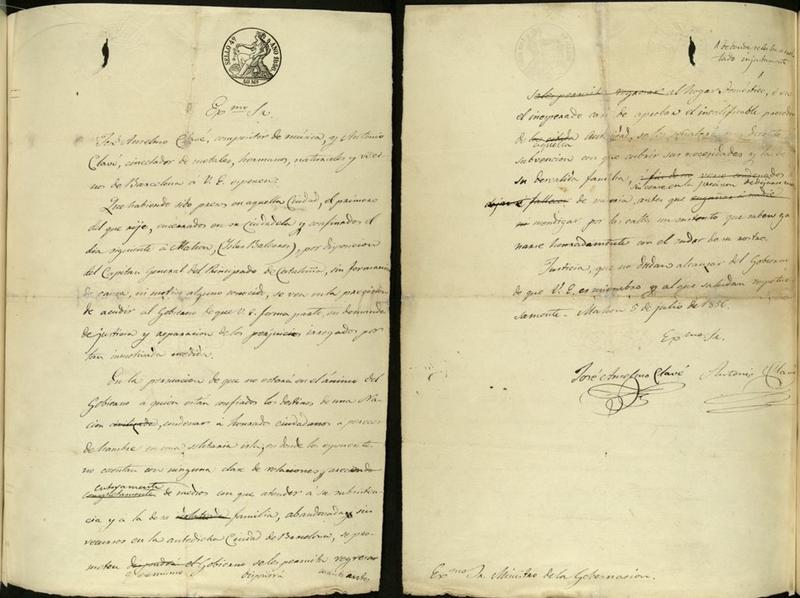 SELLO 4º AÑO 1856.
40 MS
Exmo Sr.
José Anselmo Clavé, compositor de música, y Antonio
Clavé, cincelador de metales, hermanos, naturales y veci-
nos de Barcelona á V. E. esponen:
Que habiendo sido presos en aquella Ciudad, el primero
del que rije, encerrados en su Ciudadela y confinados el
dia siguiente á Mahon, (Islas Baleares), por disposicion
del Capitan General del Principado de Cataluña, sin formacion
de causa, ni motivo alguno conocido, se ven en la precision
de acudir al Gobierno de que V. E. forma parte, en demanda
de justicia y reparacion de los perjuicios irrogados por
tan inmotivada medida.
En la persuacion de que no estará en el ánimo del
Gobierno a quien estan confiados los destinos de una Na-
cion civilizada, condenar á honrados ciudadanos a perecer
de hambre en una solitaria isla, en donde los esponentes
no cuentan con ninguna clase de relaciones y careciendo
enteramente
completamente de medios con que atender á su subsisten-
cia y á la de su familia, abandonada y sin
recursos en la antedicha Ciudad de Barcelona, se pro-
meten que el Gobierno se les permita regresar
dispondrá antes
se les permita regresar al hogar doméstico, ó en
el inesperado caso de aprobar el incalificable proceder
de Autoridad, se les señalará una decente
aquella
subvencion con que cubrir sus necesidades y las de
su desvalida familia,
sin verse en la precision
fallecer de miseria, antes que
mendigar por las calles un sustento que saben ga-
narse honradamente con el sudor de su rostro.
Justicia, que no dudan alcanzar del Gobierno
de que V. E. es miembro y al que saludan respetuo-
samente. Mahon 5 de julio de 1856.
Exmo Sr.
José Anselmo Clavé Antonio Clavé
Exmo Sr. Ministro de la Gobernacion.